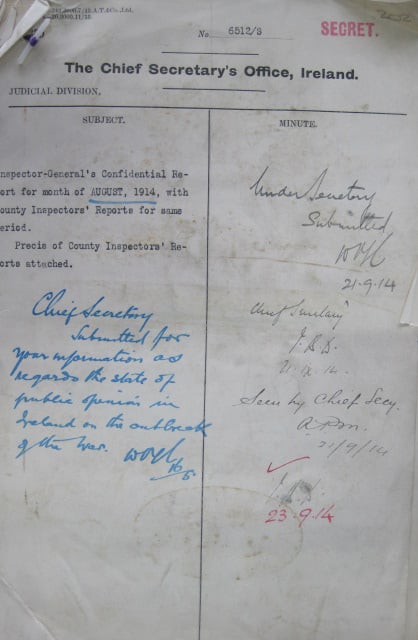 No. 6512/S
SECRET.
The Chief Secretary's Office, Ireland.
JUDICIAL DIVISION,
SUBJECT.
nspector-General's Confidential Re-
ort for month of AUGUST, 1914, with
ounty Inspectors' Reports for same
eriod.
Precis of County Inspectors' Re-
orts attached.
Chief Secretary
Submitted for
your information as
regards the state of
public opinion in
Ireland on the outbreak
of the War.
MINUTE.
Under Secretary
Submitted
21-9-14
Chief Secretary
Seen by Chief Secy.
21/9/14
23-9-14